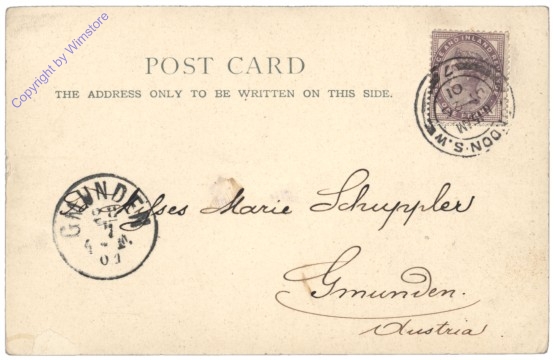 Copyright by Wimstore
POST CARD
THE ADDRESS ONLY TO BE WRITTEN ON THIS SIDE.
AND INLAND
LONDON.S.W
01
GMUNDEN
01
Marie Schuppler
Gmunden.
Austria